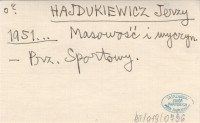 o?
HAJDUKIEWICZ Jerzy
1951... Masowość i wyczyn
– Prz. Sportowy.